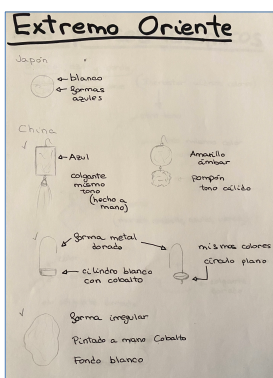 Extremo Oriente
Japón
blanco
formas
azules
China
Azul
colgante
mismo
tono
(hecho a
mano)
Amarillo
ámbar
pompón
tono cálido
forma metal
dorado
cilindro blanco
con cobalto
mismos colores
círculo plano
forma irregular
Pintado a mano Cobalto
Fondo blanco